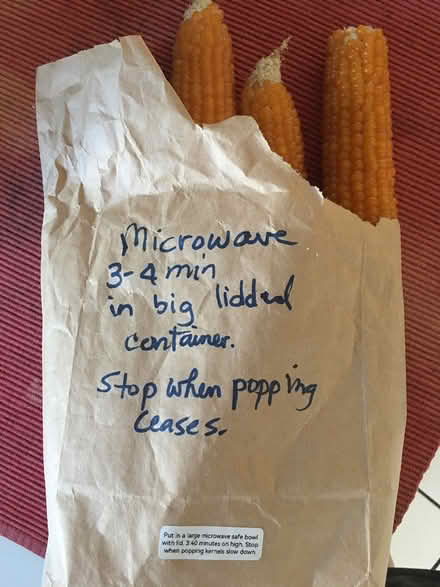 Microwave
3-4 min
in big lidded
container.
Stop when popping
ceases.
Put in a large microwave safe bowl
with lid. 3:40 minutes on high. Stop
when popping kernels slow down